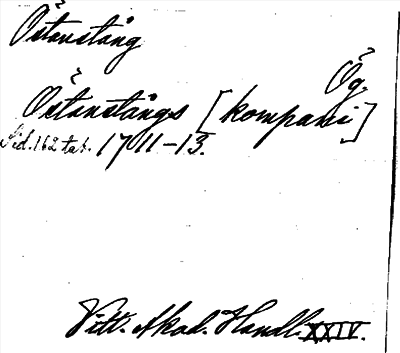 Östanstång
Ög.
Östanstångs [kompani]
Sid. 162 tab. 1711-13.
Vitt. Akad. Handl. XXIV.